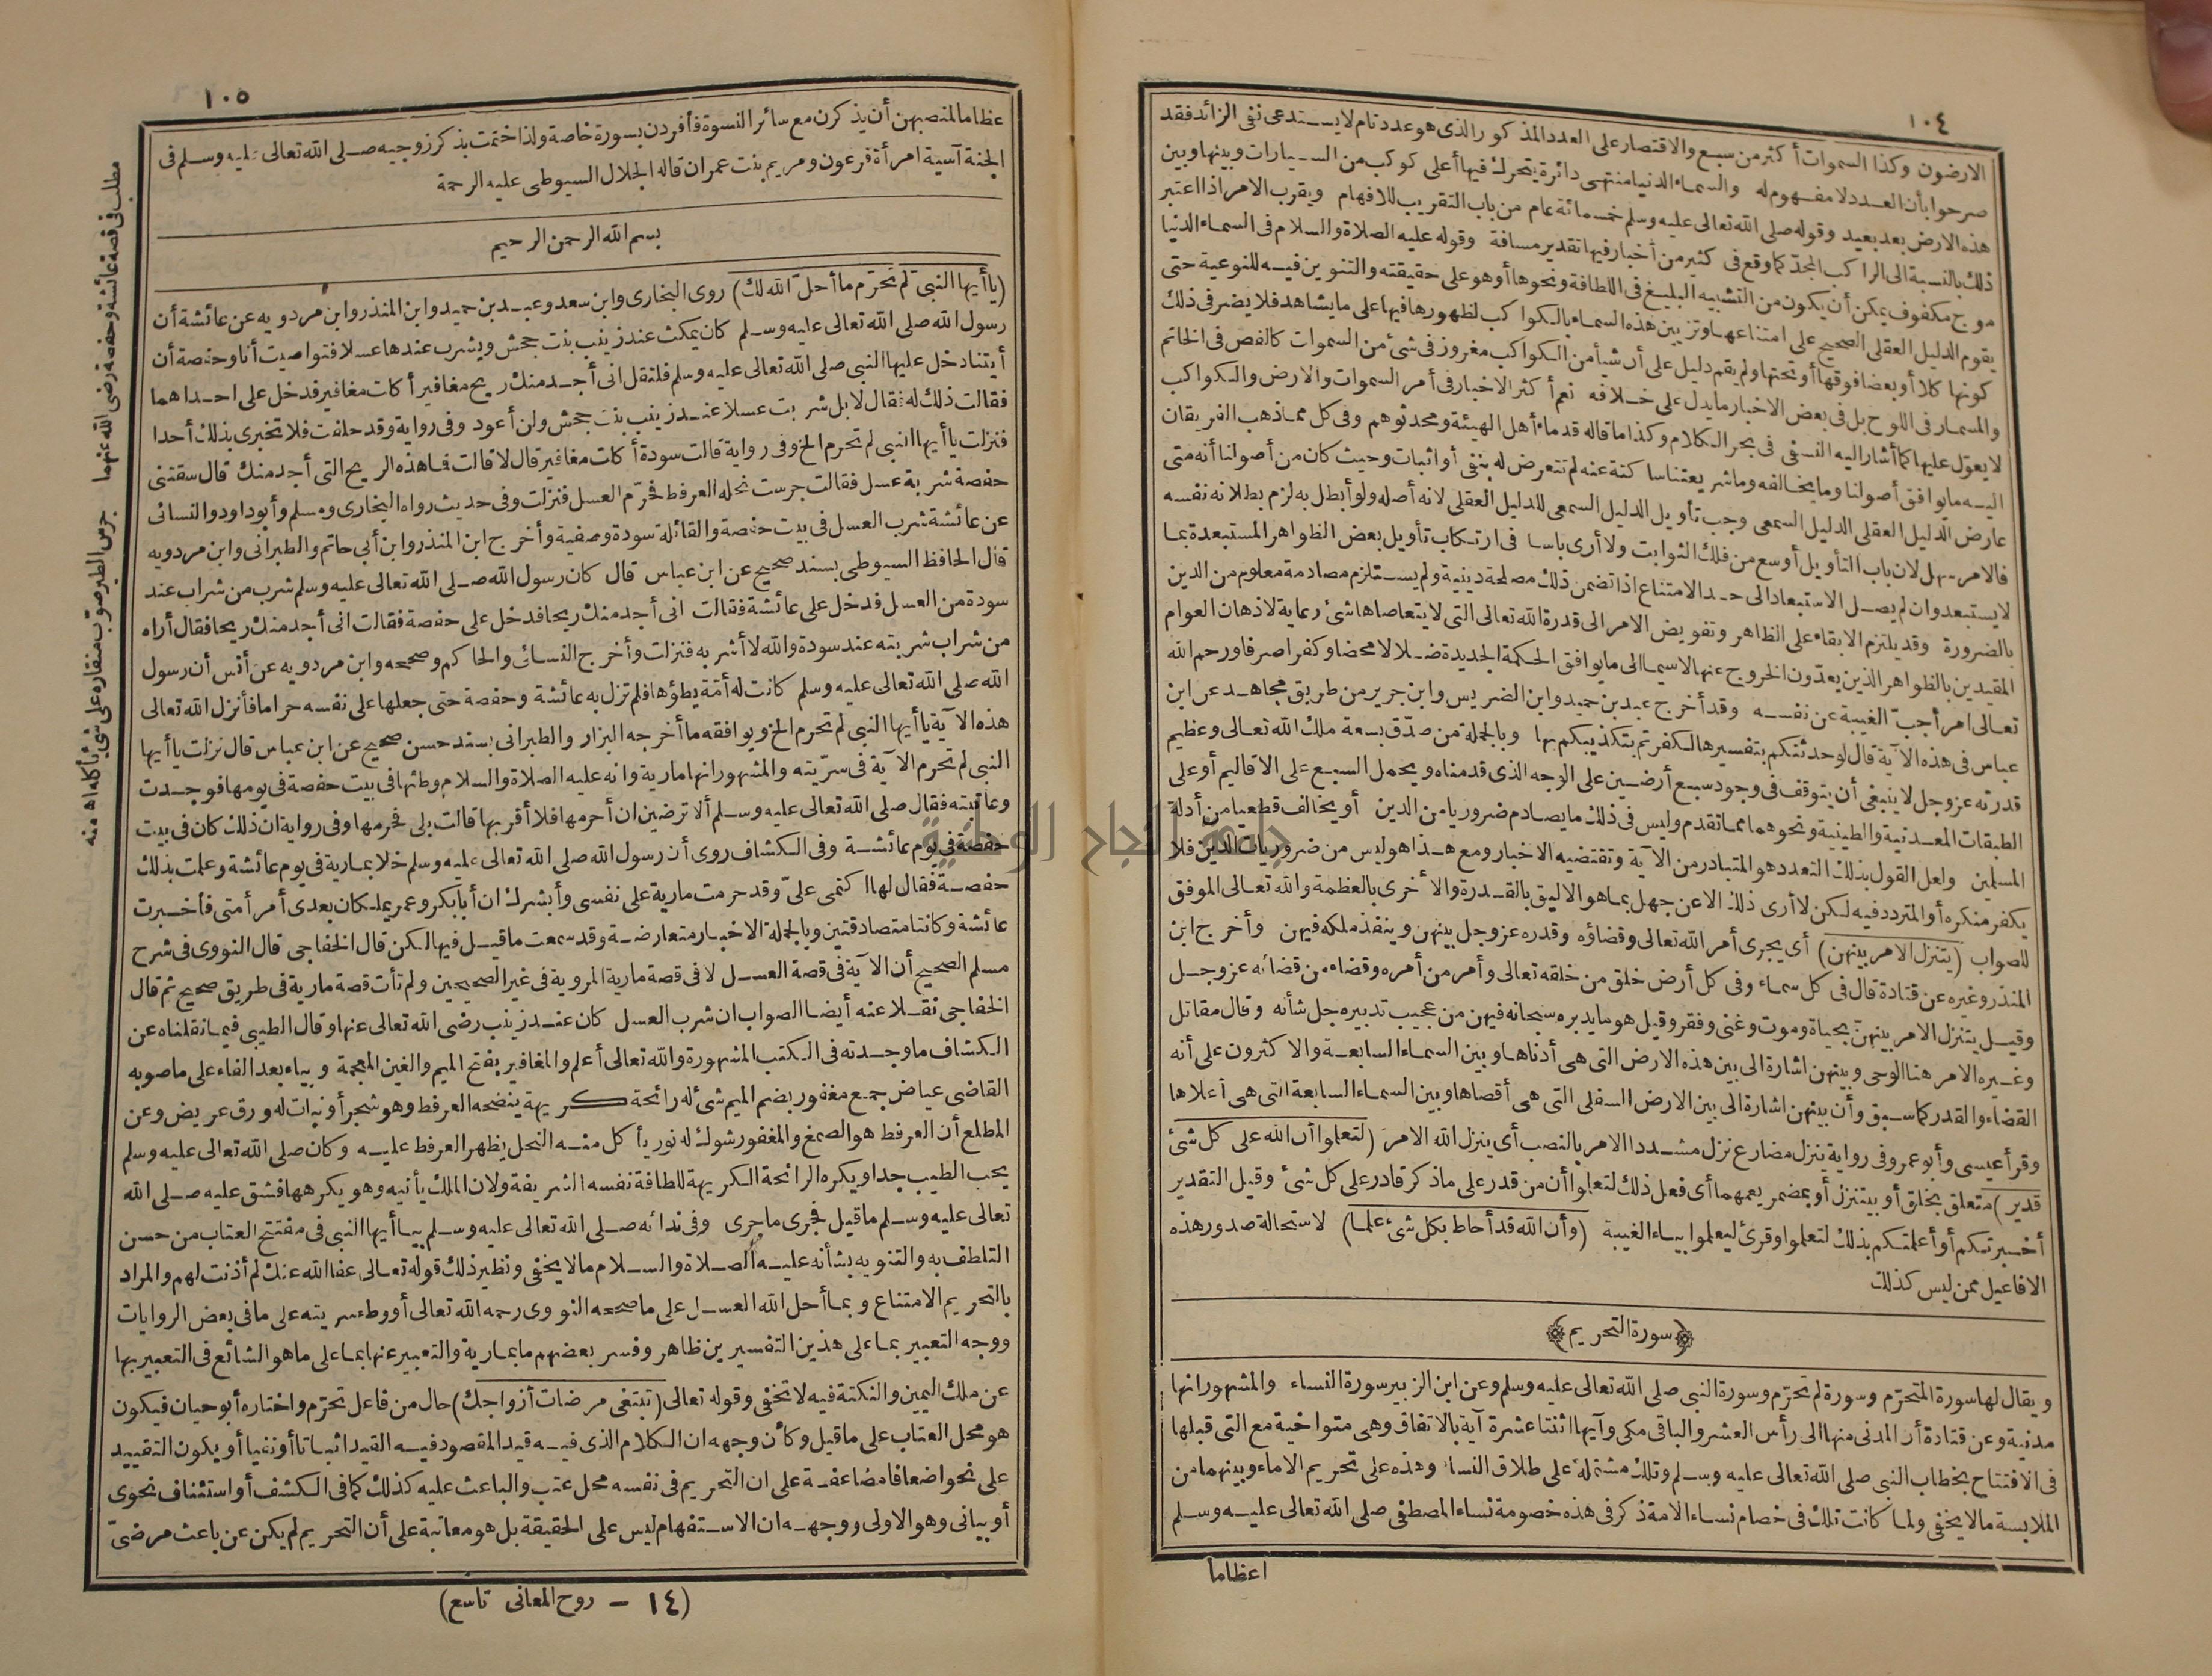 ١٠٤
الارضون وكذا السموات أكثر من سبع والاقتصار على العدد المذكور الذى هو عدد تام لا يستدعى نفى الزائد فقد
صرحوا بأن العدد لا مفهوم له والسماء الدنيا منتهى دائرة يتحرك فيها أعلى كوكب من السيارات وبينها وبين
هذه الارض بعد بعيد وقوله صلى الله تعالى عليه وسلم خمسمائة عام من باب التقريب للافهام ويقرب الامر اذا اعتبر
ذلك بالنسبة الى الراكب المجد كما وقع فى كثير من أخبار فيها تقدير مسافة وقوله عليه الصلاة والسلام فى السماء الدنيا
موج مكفوف يمكن أن يكون من التشبيه البليغ فى اللطافة ونحوها أو هو على حقيقته والتنوين فيه للنوعية حتى
يقوم الدليل العقلى الصحيح على امتناعها وتزيين هذه السماء بالكواكب لظهورها فيها على ما يشاهد فلا يضر فى ذلك
كونها كلا أو بعضا فوقها أو تحتها ولم يقم دليل على أن شيأ من الكواكب مغروز فى شئ من السموات كالفص فى الخاتم
والمسمار فى اللوح بل فى بعض الاخبار ما يدل على خلافه نعم أكثر الاخبار فى أمر السموات والارض والكواكب
لا يعوّل عليها كما أشار اليه النسفى فى بحر الكلام وكذا ما قاله قدماء أهل الهيئة ومحدثوهم وفى كل مما ذهب الفريقان
اليه ما يوافق أصولنا وما يخالفه وما شريعتنا ساكتة عنه لم تتعرض له بنفى أو اثبات وحيث كان من أصولنا أنه متى
عارض الدليل العقلى الدليل السمعى وجب تأويل الدليل السمعى للدليل العقلى لانه أصله ولو أبطل به لزم بطلانه نفسه
فالامر سهل لان باب التأويل أوسع من فلك الثوابت ولا أرى باسا فى ارتكاب تأويل بعض الظواهر المستبعدة بما
لا يستبعد وان لم يصل الاستبعاد الى حد الامتناع اذا تضمن ذلك مصلحة دينية ولم يستلزم مصادمة معلوم من الدين
بالضرورة وقد يلتزم الابقاء على الظاهر وتفويض الامر الى قدرة الله تعالى التى لا يتعاصاها شئ رعاية لاذهان العوام
المقيدين بالظواهر الذين يعدّون الخروج عنها لاسيما الى ما يوافق الحكمة الجديدة ضلالا محضا وكفرا صرفا ورحم الله
تعالى امرأ جبّ الغيبة عن نفسه وقد أخرج عبد بن حميد وابن الضريس وابن جرير من طريق مجاهد عن ابن
عباس فى هذه الآية قال لو حدثتكم بتفسيرها لكفرتم بتكذيبكم بها وبالجملة من صدّق بسعة ملك الله تعالى وعظيم
قدرته عز وجل لا ينبغى أن يتوقف فى وجود سبع أرضين على الوجه الذى قدمناه ويحمل السبع على الاقاليم أو على
الطبقات المعدنية والطينية ونحوهما مما تقدم وليس فى ذلك ما يصادم ضروريا من الدين أو يخالف قطعيا من أدلة
المسلمين ولعل القول بذلك التعدد هو المتبادر من الآية وتقتضيه الاخبار ومع هذا هو ليس من ضروريات الدين فلا
يكفر منكره أو المتردد فيه لكن لا أرى ذلك الا عن جهل بما هو الاليق بالقدرة والاحرى بالعظمة والله تعالى الموفق
للصواب (يتنزل الامر بينهن) أى يجرى أمر الله تعالى وقضاؤه وقدره عز وجل بينهن وينفذ ملكه فيهن وأخرج ابن
المنذر وغيره عن قتادة قال فى كل سماء وفى كل أرض خلق من خلقه تعالى وأمر من أمره وقضاء من قضائه عز وجل
وقيل يتنزل الامر بينهن بحياة وموت وغنى وفقر وقيل هو ما يدبره سبحانه فيهن من عجيب تدبيره جل شأنه وقال مقاتل
وغيره الامر هنا الوحى وبينهن اشارة الى بين هذه الارض التى هى أدناها وبين السماء السابعة والاكثرون على أنه
القضاء والقدر كما سبق وأن بينهن اشارة الى بين الارض السفلى التى هى أقصاها وبين السماء السابعة التى هى أعلاها
وقرأ عيسى وأبو عمرو فى رواية ينزل مضارع نزل مشددا الامر بالنصب أى ينزل الله الامر (لتعلموا أن الله على كل شئ
قدير) متعلق بخلق أو بيتنزل أو بمضمر يعمهما أى فعل ذلك لتعلموا أن من قدر على ما ذكر قادر على كل شئ وقيل التقدير
أخبرتكم أو أعلمتكم بذلك لتعلموا وقرئ ليعلموا بياء الغيبة (وأن الله قد أحاط بكل شئ علما) لاستحالة صدور هذه
الافاعيل ممن ليس كذلك
﴿سورة التحريم﴾
ويقال لها سورة المتحرّم وسورة لم تحرّم وسورة النبى صلى الله تعالى عليه وسلم وعن ابن الزبير سورة النساء والمشهور انها
مدنية وعن قتادة أن المدنى منها الى رأس العشر والباقى مكى وآيها اثنتا عشرة آية بالاتفاق وهى متواخية مع التى قبلها
فى الافتتاح بخطاب النبى صلى الله تعالى عليه وسلم وتلك مشتملة على طلاق النساء وهذه على تحريم الاماء وبينهما من
الملابسة ما لا يخفى ولما كانت تلك فى خصام نساء الامة ذكر فى هذه خصومة نساء المصطفى صلى الله تعالى عليه وسلم
اعظاما
١٠٥
عظاما لمنصبهن أن يذكرن مع سائر النسوة فأفردن بسورة خاصة ولذا ختمت بذكر زوجيه صلى الله تعالى عليه وسلم فى
الجنة آسية امرأة فرعون ومريم بنت عمران قاله الجلال السيوطى عليه الرحمة
بسم الله الرحمن الرحيم
(يا أيها النبى لم تحرّم ما أحلّ الله لك) روى البخارى وابن سعد وعبد بن حميد وابن المنذر وابن مردويه عن عائشة أن
رسول الله صلى الله تعالى عليه وسلم كان يمكث عند زينب بنت جحش ويشرب عندها عسلا فتواصيت أنا وحفصة أن
أيتنا دخل عليها النبى صلى الله تعالى عليه وسلم فلتقل انى أجد منك ريح مغافير أكلت مغافير فدخل على احداهما
فقالت ذلك له فقال لا بل شربت عسلا عند زينب بنت جحش ولن أعود وفى رواية وقد حلفت فلا تخبرى بذلك أحدا
فنزلت يا أيها النبى لم تحرم الخ وفى رواية قالت سودة أكلت مغافير قال لا قالت فما هذه الريح التى أجد منك قال سقتنى
حفصة شربة عسل فقالت جرست نحله العرفط فحرّم العسل فنزلت وفى حديث رواه البخارى ومسلم وأبو داود والنسائى
عن عائشة شرب العسل فى بيت حفصة والقائلة سودة وصفية وأخرج ابن المنذر وابن أبى حاتم والطبرانى وابن مردويه
قال الحافظ السيوطى بسند صحيح عن ابن عباس قال كان رسول الله صلى الله تعالى عليه وسلم شرب من شراب عند
سودة من العسل فدخل على عائشة فقالت انى أجد منك ريحا فدخل على حفصة فقالت انى أجد منك ريحا فقال أراه
من شراب شربته عند سودة والله لا أشربه فنزلت وأخرج النسائى والحاكم وصححه وابن مردويه عن أنس أن رسول
الله صلى الله تعالى عليه وسلم كانت له أمة يطؤها فلم تزل به عائشة وحفصة حتى جعلها على نفسه حراما فأنزل الله تعالى
هذه الآية يا أيها النبى لم تحرم الخ ويوافقه ما أخرجه البزار والطبرانى بسند حسن صحيح عن ابن عباس قال نزلت يا أيها
النبى لم تحرم الآية فى سرّيته والمشهور انها مارية وانه عليه الصلاة والسلام وطئها فى بيت حفصة فى يومها فوجدت
وعاتبته فقال صلى الله تعالى عليه وسلم ألا ترضين ان أحرمها فلا أقربها قالت بلى فحرمها وفى رواية ان ذلك كان فى بيت
حفصة فى يوم عائشة وفى الكشاف روى أن رسول الله صلى الله تعالى عليه وسلم خلا بمارية فى يوم عائشة وعلمت بذلك
حفصة فقال لها اكتمى علىّ وقد حرمت مارية على نفسى وأبشرك ان أبا بكر وعمر يملكان بعدى أمر أمتى فأخبرت
عائشة وكانتا متصادقتين وبالجملة الاخبار متعارضة وقد سمعت ما قيل فيها لكن قال الخفاجى قال النووى فى شرح
مسلم الصحيح أن الآية فى قصة العسل لا فى قصة مارية المروية فى غير الصحيحين ولم تأت قصة مارية فى طريق صحيح ثم قال
الخفاجى نقلا عنه أيضا الصواب ان شرب العسل كان عند زينب رضى الله تعالى عنها وقال الطيبى فيما نقلناه عن
الكشاف ما وجدته فى الكتب المشهورة والله تعالى أعلم والمغافير بفتح الميم والغين المعجمة وبياء بعد الفاء على ما صوبه
القاضى عياض جمع مغفور بضم الميم شئ له رائحة كريهة ينضحه العرفط وهو شجر أو نبات له ورق عريض وعن
المطلع أن العرفط هو الصمغ والمغفور شوك له نور يأكل منه النحل يظهر العرفط عليه وكان صلى الله تعالى عليه وسلم
يحب الطيب جدا ويكره الرائحة الكريهة للطافة نفسه الشريفة ولان الملك يأتيه وهو يكرهها فشق عليه صلى الله
تعالى عليه وسلم ما قيل فجرى ما جرى وفى ندائه صلى الله تعالى عليه وسلم بيا أيها النبى فى مفتتح العتاب من حسن
التلطف به والتنويه بشأنه عليه الصلاة والسلام ما لا يخفى ونظير ذلك قوله تعالى عفا الله عنك لم أذنت لهم والمراد
بالتحريم الامتناع وبما أحل الله العسل على ما صححه النووى رحمه الله تعالى أو وطء سريته على ما فى بعض الروايات
ووجه التعبير بما على هذين التفسيرين ظاهر وفسر بعضهم ما بمارية والتعبير عنها بما على ما هو الشائع فى التعبير بها
عن ملك اليمين والنكتة فيه لا تخفى وقوله تعالى (تبتغى مرضات أزواجك) حال من فاعل تحرّم واختاره أبو حيان فيكون
هو محل العتاب على ما قيل وكأن وجهه ان الكلام الذى فيه قيد المقصود فيه القيد اثباتا أو نفيا أو يكون التقييد
على نحو اضعافا مضاعفة على ان التحريم فى نفسه محل عتب والباعث عليه كذلك كما فى الكشف أو استئناف نحوى
أو بيانى وهو الاولى ووجهه ان الاستفهام ليس على الحقيقة بل هو معاتبة على أن التحريم لم يكن عن باعث مرضىّ
(١٤ – روح المعانى تاسع)
مطلب فى قصة عائشة وحفصة رضى الله عنهما
جرس الطير صوّت منقاره على شئ يأكله اه منه
جامعة النجاح الوطنية